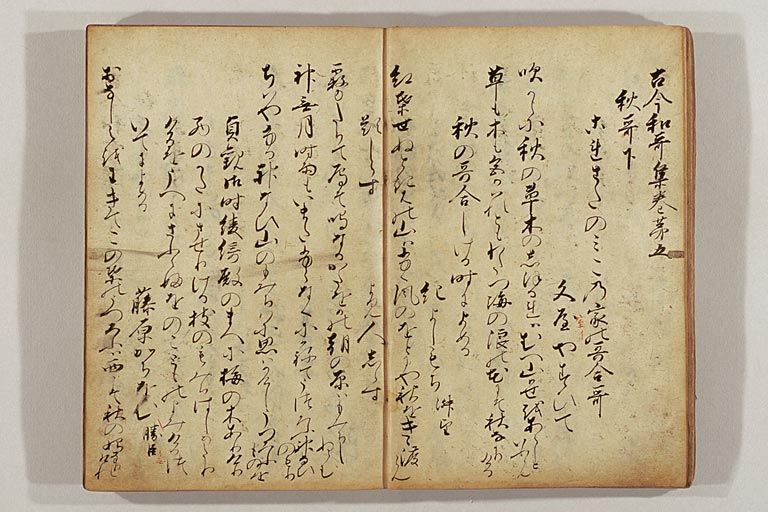 古今和哥集巻第五
秋哥下
これさたのみこの家の哥合哥
文屋やすひて
吹からに秋の草木のしほるれはむへ山かせをあらしといふらん
草も木も色かはれともわたつ海の浪の花にそ秋なかりける
秋の哥合しける時によめる
紀よしもち
紅葉せぬときはの山は吹風のをとにや秋をきき渡らん
題しらす
よみ人しらす
霧たちて鴈そ鳴なるかた岡の朝の原はもみちしぬらむ
神無月時雨もいまたふらなくにかねてうつろふ神なひのもり
ちはやふる神なひ山のもみちはに思ひはかけしうつろふものを
貞観御時綾綺殿のまへに梅の木ありけり
西のかたにさせりける枝のもみちはしめたり
けるをうへにさふらふをのこともの よみけるつ
いてによめる
藤原かちおむ
勝臣
おなしえをわきてこの葉のうつろふは西こそ秋の初なりけれ